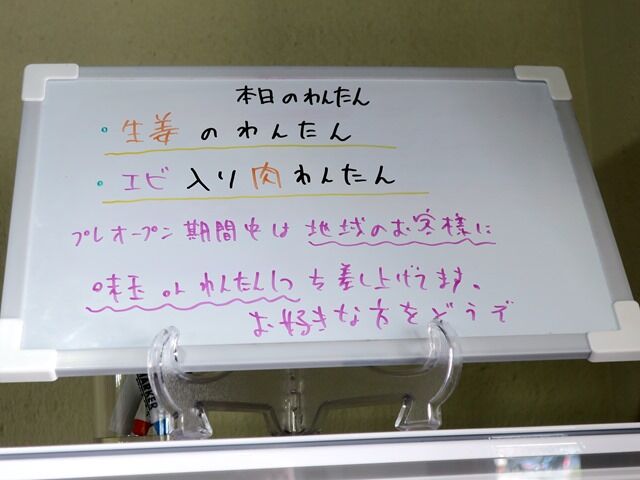 本日のわんたん
・生姜のわんたん
・エビ入り肉わんたん
プレオープン期間中は地域のお客様に
味玉 or わんたん1つを差し上げてます。
お好きな方をどうぞ
MARKER